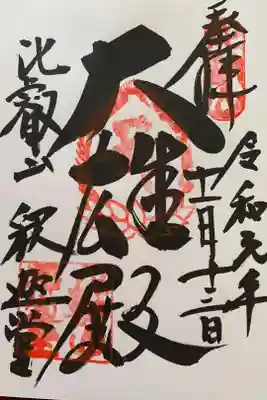 奉拝
令和元年
十一月十三日
大雄殿
比叡山
釈迦堂